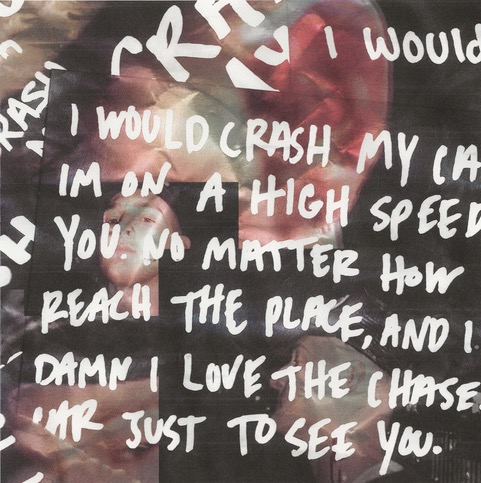 CRA
I WOULD
I WOULD CRASH MY CA
IM ON A HIGH SPEED
YOU. NO MATTER HOW
REACH THE PLACE, AND I
DAMN I LOVE THE CHASE.
CAR JUST TO SEE YOU.